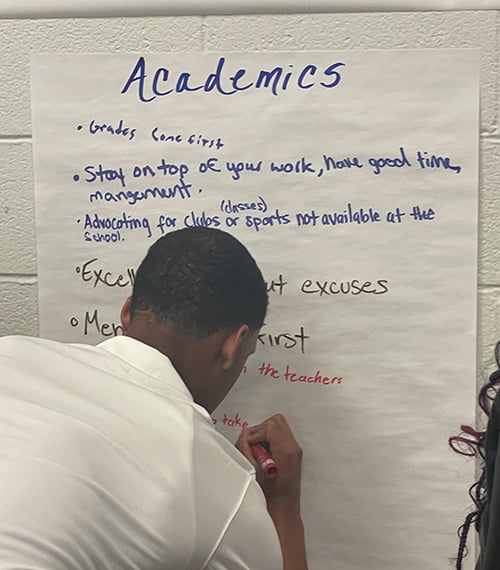 Academics
• Grades Come first
• Stay on top of your work, have good time
mangement.
(classes)
• Advocating for clubs or sports not available at the
school.
• Excell ut excuses
• Men First
the teachers
take